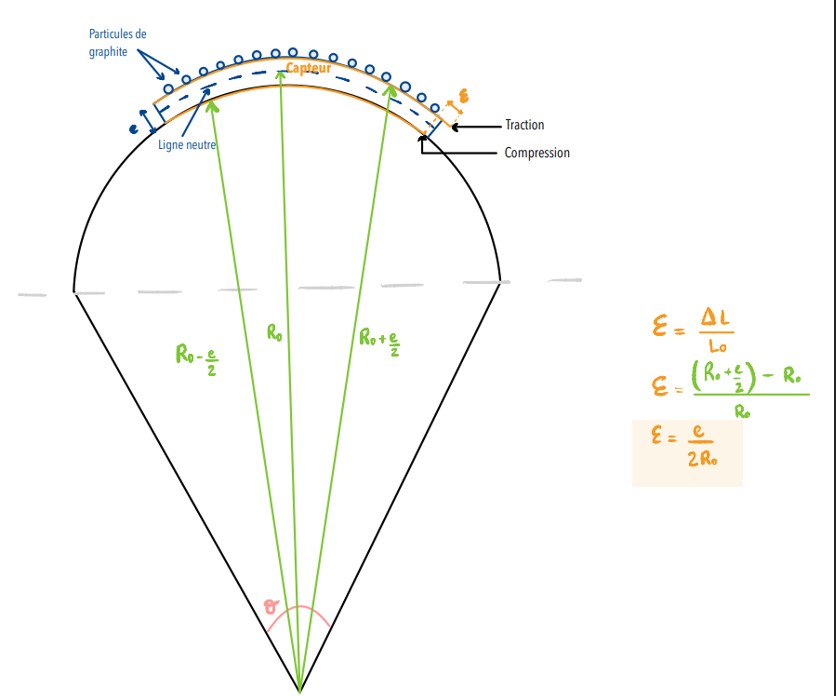 Particules de
graphite
Capteur
ε
e
Ligne neutre
Traction
Compression
R₀ - e/2
R₀
R₀ + e/2
θ
ε = ΔL / L₀
ε = ((R₀ + e/2) - R₀) / R₀
ε = e / 2R₀